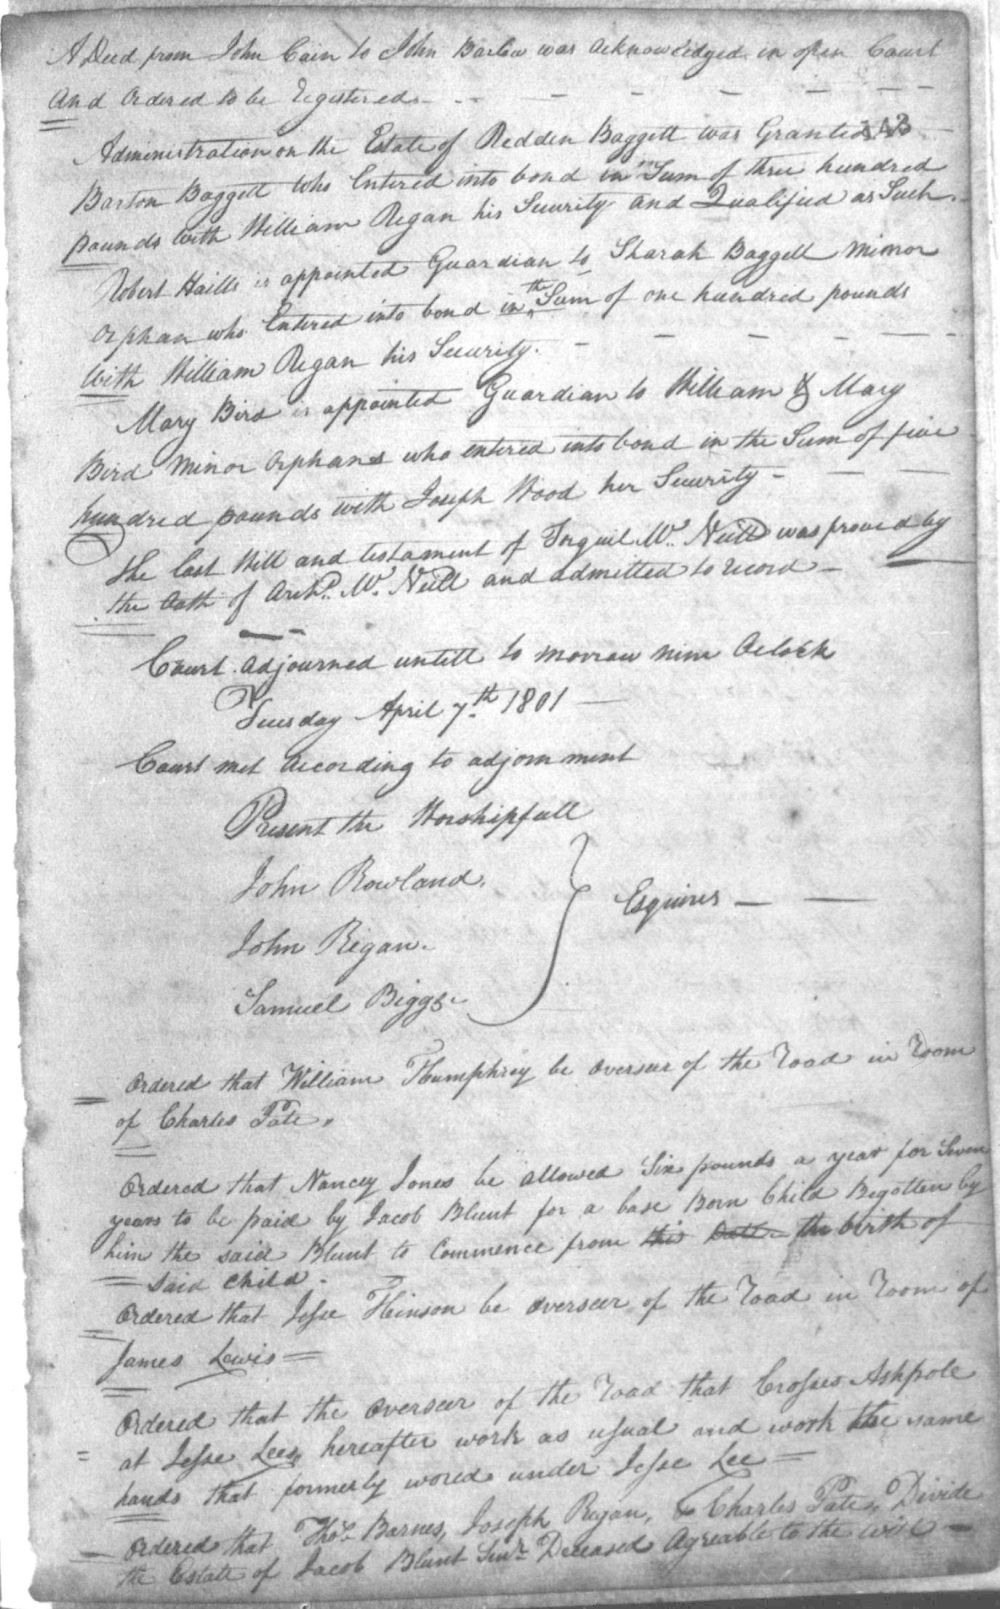 A Deed from John Cain to John Barlow was acknowledged in open Court
And Ordered to be Registered - - - - - - - -
Administration on the Estate of Redden Baggett was Granted to
Barton Baggett Who Entered into bond in Sum of three hundred
pounds with William Regan his Security and Qualified as Such.
Robert Haills is appointed Guardian to Sharah Baggett minor
Orphan who Entered into bond in th Sum of one hundred pounds
With William Regan his Security. - - - - - -
Mary Bird is appointed Guardian to William & Mary
Bird Minor Orphans who entered into bond in the Sum of five
hundred pounds with Joseph Wood her Security - - -
The last Will and testament of Torquil Mc. Neill was proved by
the Oath of Archd. Mc. Neill and admitted to record -
Court adjourned untill to morrow nine Oclock
Tuesday April 7th 1801 -
Court met According to adjornment
Present the Worshipfull
John Rowland,
John Regan.
Esquires - -
Samuel Biggs
Ordered that William Humphrey be overseer of the road in room
of Charles Pate.
Ordered that Nancy Jones be allowed Six pounds a year for Seven
years to be paid by Jacob Blunt for a base Born Child Begotten by
him the said Blunt to Commence from this Date the birth of
= Said Child -
Ordered that Jesse Hinson be overseer of the road in room of
James Lewis =
Ordered that the overseer of the road that Crosses Ashpole
= at Jesse Lees, hereafter work as usual and work the same
hands that formerly wored under Jesse Lee =
Ordered that Thos. Barnes, Joseph Regan, & Charles Pate, Divide
the Estate of Jacob Blunt Senr. Deceased Agreable to the will -